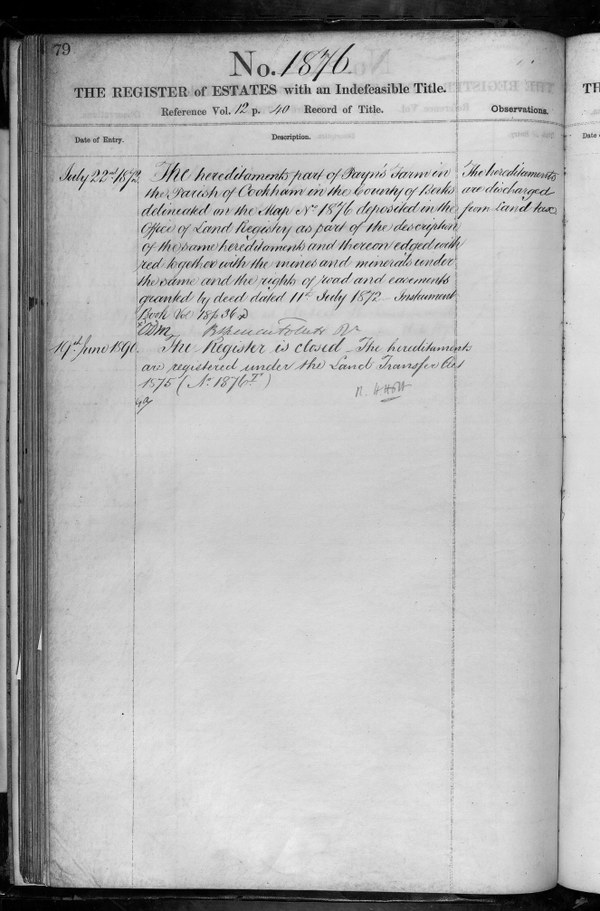 79
No. 1876
THE REGISTER of ESTATES with an Indefeasible Title.
Reference Vol. 12 p. 40 Record of Title.
Observations.
Date of Entry.
Description.
July 22nd 1872
The hereditaments part of Payn's Farm in
the Parish of Cookham in the County of Berks
delineated on the Map No. 1876 deposited in the
Office of Land Registry as part of the description
of the same hereditaments and thereon edged with
red together with the mines and minerals under
the same and the rights of road and easements
granted by deed dated 11th July 1872 - Instrument
Book Vol 18 p. 36
The hereditaments
are discharged
from Land tax
19th June 1890
The Register is closed - The hereditaments
are registered under the Land Transfer Act
1875 (No. 1876
R. H Holt
TH
Date